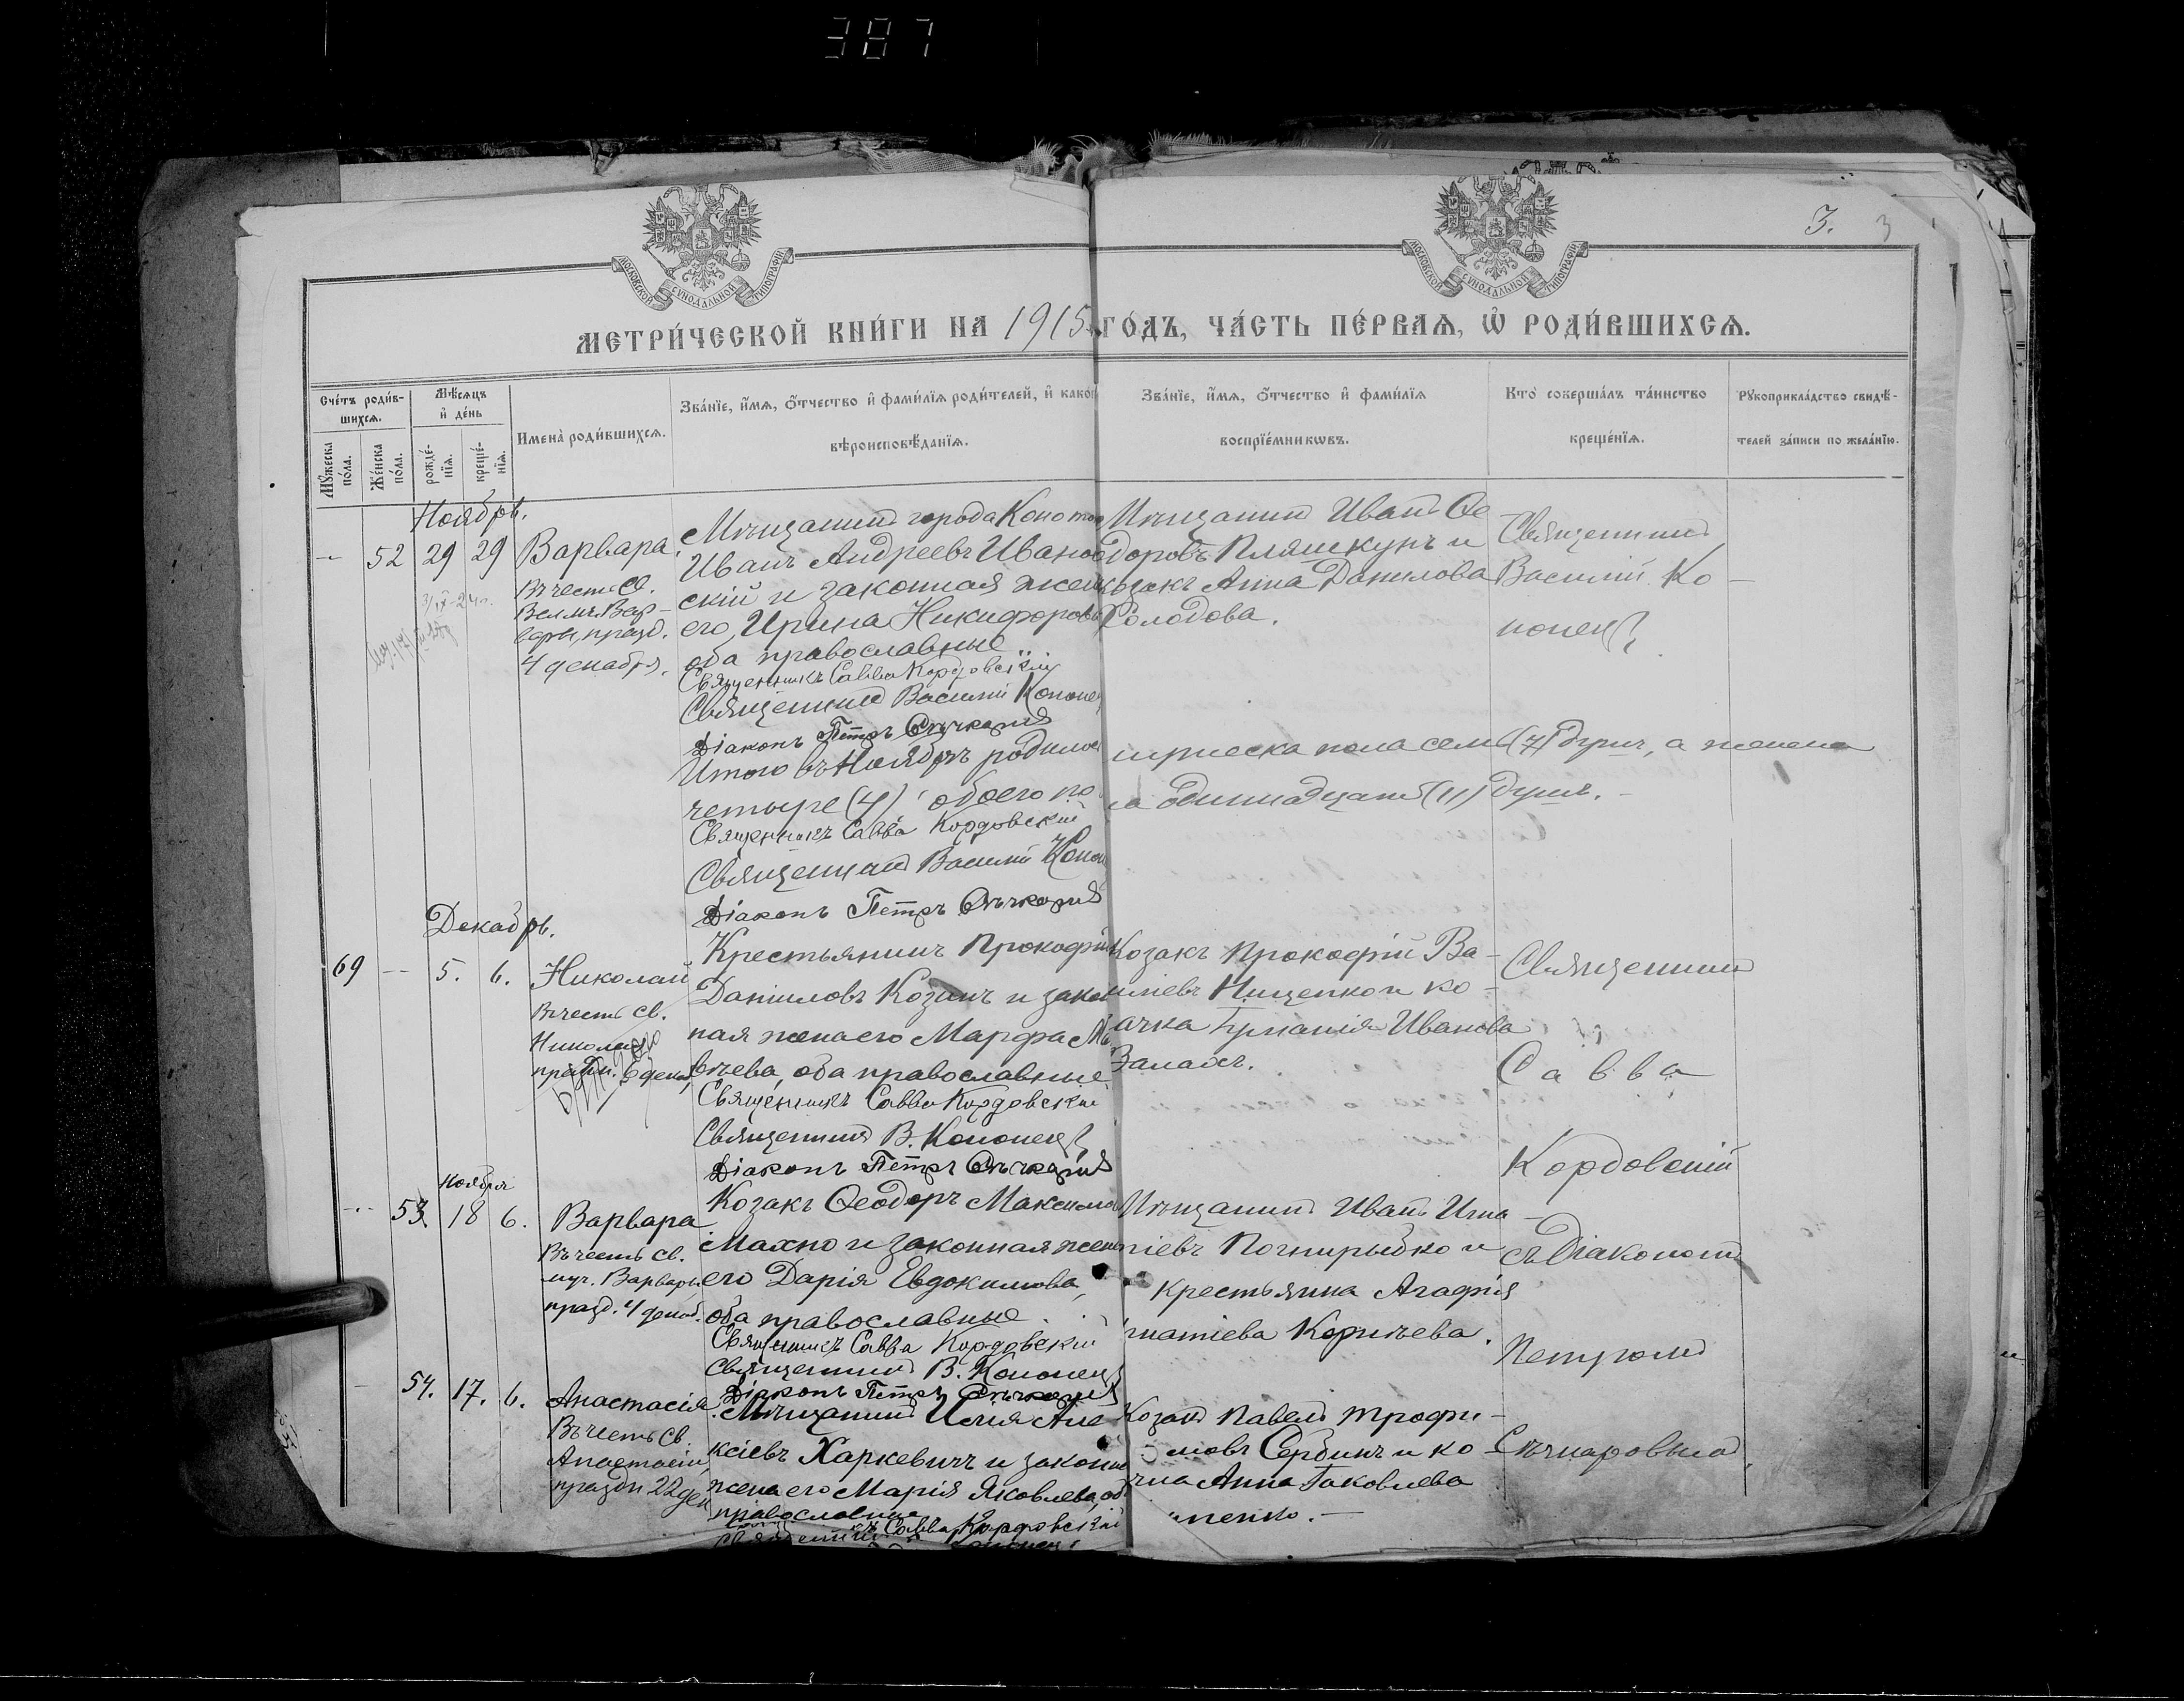 387
3.
3
МОСКОВСКОЙ СѴНОДАЛЬНОЙ ТИПОГРАФІИ
МОСКОВСКОЙ СѴНОДАЛЬНОЙ ТИПОГРАФІИ
МЕТРИ́ЧЕСКОЙ КНИ́ГИ НА 1915 ГО́ДЪ, ЧА́СТЬ ПЕ́РВАѦ, Ѡ҆ РОДИ́ВШИХСѦ.
Сче́тъ роди́в-
шихсѧ.
Мꙋ́жеска по́ла.
Же́нска по́ла.
Мѣ́сѧцъ
и҆ де́нь
рожде́-
нїѧ.
креще́-
нїѧ.
Имена̀ роди́вшихсѧ.
Зва́нїе, и҆́мѧ, ѻ҆́тчество и҆ фами́лїѧ роди́телей, и҆ како́
вѣроисповѣ́данїѧ.
Зва́нїе, и҆́мѧ, ѻ҆́тчество и҆ фами́лїѧ
воспрїе́мникѡвъ.
Кто̀ соверша́лъ та́инство
креще́нїѧ.
Рꙋкоприкла́дство свидѣ́-
телей за́писи по жела́нїю.
Ноябрь.
52 29 29 Варвара
Въ честь Св.
Велмч. Вар-
вары, празд.
4 декабря.
Мѣщанинъ города Коно
Иванъ Андреевъ Иванов
скій и законная жен
его Ирина Никифоров
оба православные
Священникъ Савва Кордовскій
Священникъ Василій Кононец
Діаконъ Петръ
Мѣщанинъ Иванъ Ѳе
доровъ Пляшкунъ и
козач Анна Данилова
Солодова.
Священникъ
Василій Ко-
нонецъ
Итого въ Ноябрѣ родилос
мужеска пола семь (7) душ, а женска
четыре (4) обоего по
ла одинадцать (11) душъ.
Священникъ Савва Кордовскій
Священникъ Василій Конон
Діаконъ Петръ
Декабрь.
69 -- 5. 6. Николай
Въ честь св.
Николая
праздн. 6 декаб
Крестьянинъ Прокофій
Даніиловъ Козинъ и закон
ная жена его Марфа
оба православные
Священникъ Савва Кордовскій
Священникъ В. Кононецъ
Діаконъ Петръ
Козакъ Прокофій Ва-
иліевъ Нищенко и ко-
ачка Иванова
Священникъ
Савва
Кордовскій
ноября
53. 18 6. Варвара
Въ честь св.
муч. Варвары
празд. 4 декаб.
Козакъ Ѳеодоръ Максимов
Махно и законная жен
его Дарія Евдокимова,
оба православные
Священникъ Савва Кордовскій
Священникъ В. Кононецъ
Діаконъ Петръ
Мѣщанинъ Иванъ Игна-
тіевъ и
крестьянка Агафія
гнатіева
съ Діакономъ
Петромъ
54. 17. 6. Анастасія
Въ честь Св
Анастасіи,
праздн 22 дек
Мѣщанинъ Илія Але
ксіевъ Харкевичъ и законн
жена его Марія Яковлева, об
православные
Савва Кордовскій
Козакъ Павелъ Трофи-
мовъ Сербинъ и ко-
чка Анна Іаковлева
енко.